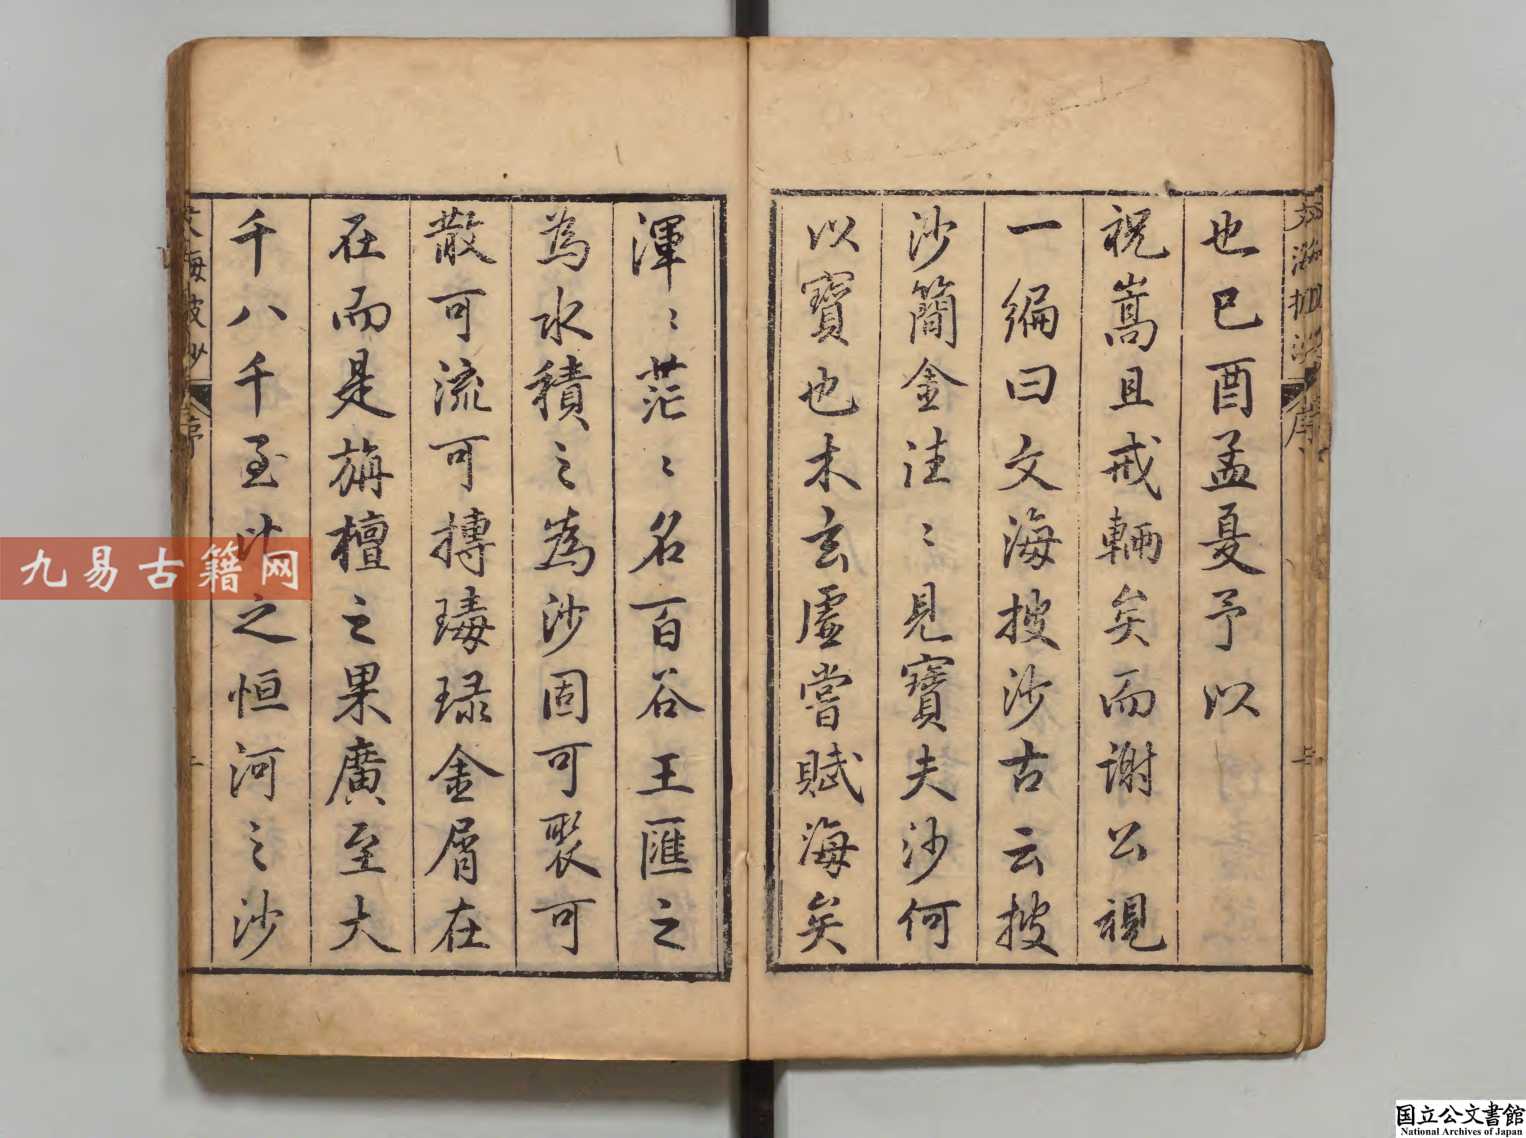 也己酉孟夏予以
祝嵩且戒輛矣而謝公視
一編曰文海披沙古云披
沙簡金洼〻見寶夫沙何
以寶也木玄虛嘗賦海矣
渾〻茫〻名百谷王匯之
為水積之為沙固可聚可
散可流可摶瑇琭金屑在
在而是旃檀之果廣至大
千八千至此之恒河之沙
文海披沙
序
九易古籍网
国立公文書館
National Archives of Japan